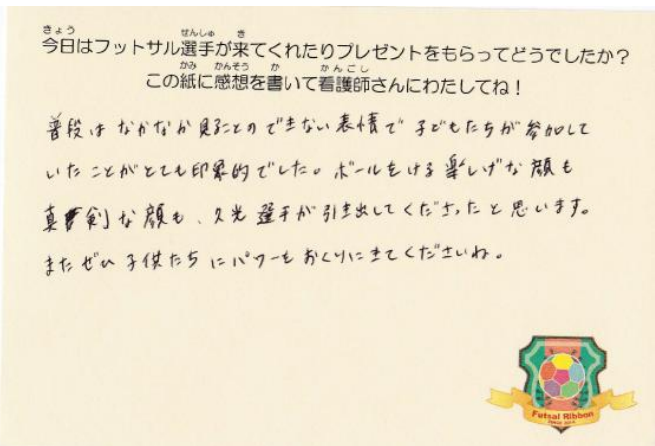 今日はフットサル選手が来てくれたりプレゼントをもらってどうでしたか？
この紙に感想を書いて看護師さんにわたしてね！
普段はなかなか見ることのできない表情で子どもたちが参加して
いたことがとても印象的でした。ボールをける楽しげな顔も
真剣な顔も、久光選手が引き出してくださったと思います。
またぜひ子供たちにパワーをおくりにきてくださいね。
Futsal Ribbon